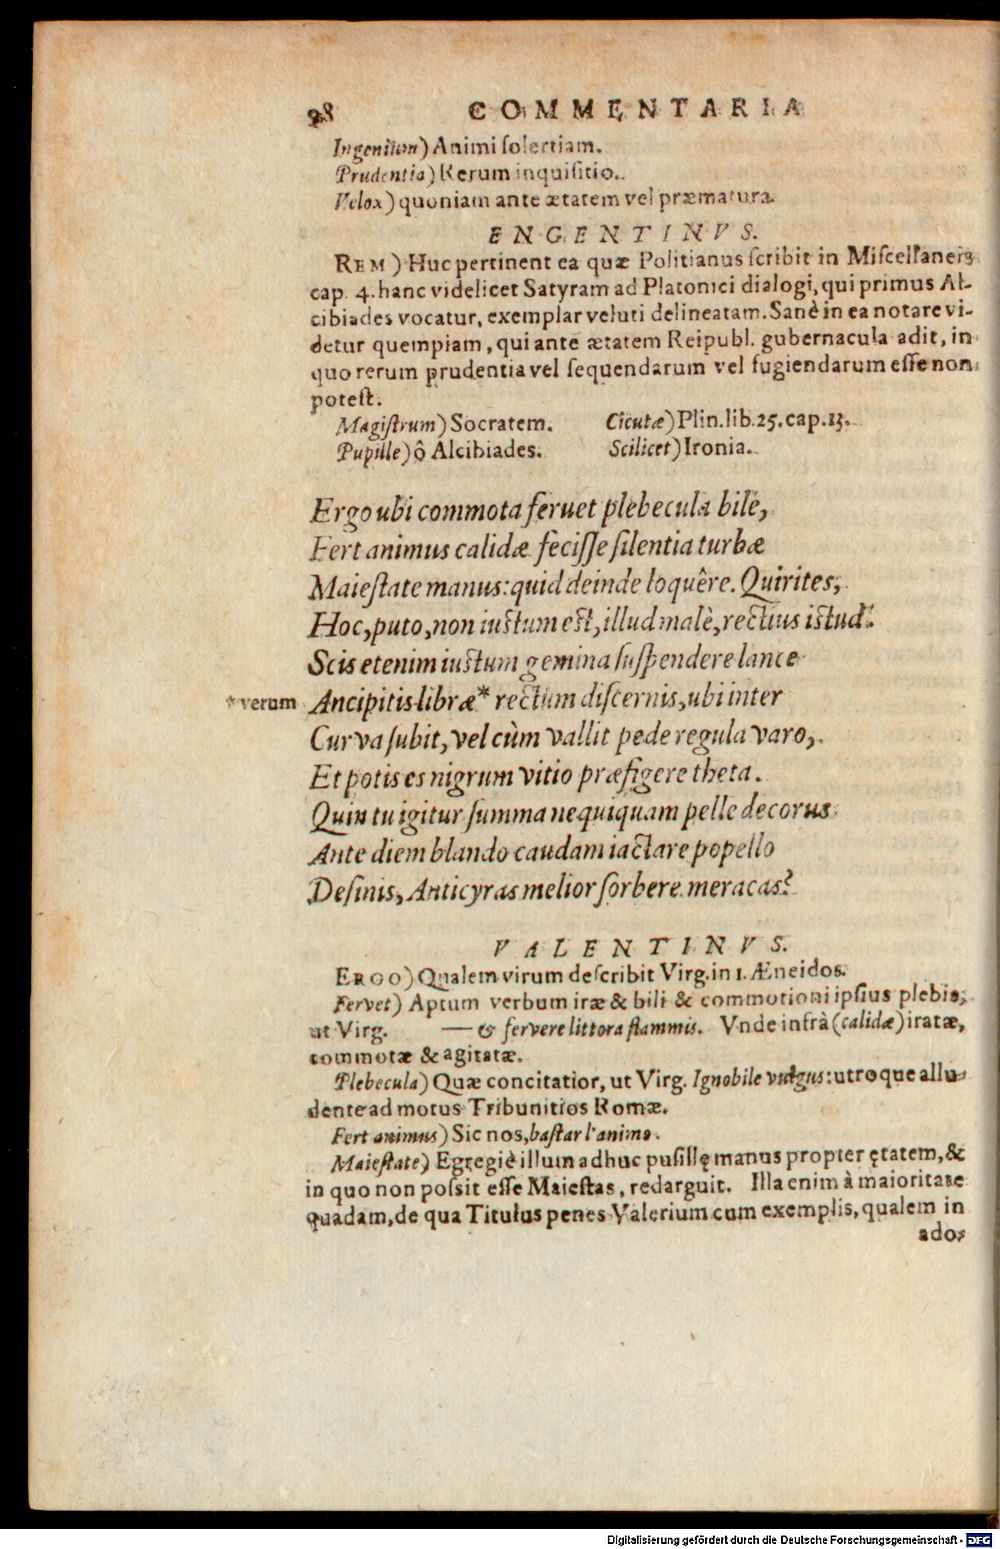 98 COMMENTARIA
Ingenium) Animi solertiam.
Prudentia) Rerum inquisitio.
Velox) quoniam ante ætatem vel præmatura.
ENGENTINVS.
REM) Huc pertinent ea quæ Politianus scribit in Miscellaneis
cap. 4. hanc videlicet Satyram ad Platonici dialogi, qui primus Al-
cibiades vocatur, exemplar veluti delineatam. Sanè in ea notare vi-
detur quempiam, qui ante ætatem Reipubl. gubernacula adit, in
quo rerum prudentia vel sequendarum vel fugiendarum esse non
potest.
Magistrum) Socratem. Cicutæ) Plin. lib. 25. cap. 13.
Pupille) ô Alcibiades. Scilicet) Ironia.
Ergo ubi commota feruet plebecula bile,
Fert animus calidæ fecisse silentia turbæ
Maiestate manus: quid deinde loquêre. Quirites,
Hoc, puto, non iustum est, illud malè, rectius istud.
Scis etenim iustum gemina suspendere lance
*verum Ancipitis libræ* rectum discernis, ubi inter
Curva subit, vel cùm vallit pede regula varo,
Et potis es nigrum vitio præfigere theta.
Quin tu igitur summa nequiquam pelle decorus
Ante diem blando caudam iactare popello
Desinis, Anticyras melior sorbere meracas?
VALENTINVS.
ERGO) Qualem virum describit Virg. in 1. Æneidos.
Fervet) Aptum verbum iræ & bili & commotioni ipsius plebis,
ut Virg. — & fervere littora flammis. Vnde infrà (calidæ) iratæ,
commotæ & agitatæ.
Plebecula) Quæ concitatior, ut Virg. Ignobile vulgus: utroque allu-
dente ad motus Tribunitios Romæ.
Fert animus) Sic nos, bastar l'animo.
Maiestate) Egregiè illum adhuc pusillę manus propter ętatem, &
in quo non possit esse Maiestas, redarguit. Illa enim à maioritate
quadam, de qua Titulus penes Valerium cum exemplis, qualem in
ado-
Digitalisierung gefördert durch die Deutsche Forschungsgemeinschaft - DFG